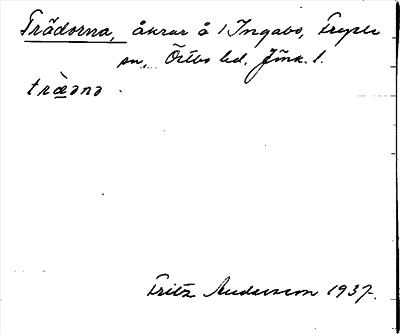 Trädorna, åkrar å 1 Ingabo, Fryele
sn, Östbo hd, Jönk. l.
træ̀ǝnǝ.
Fritz Andersson 1937.